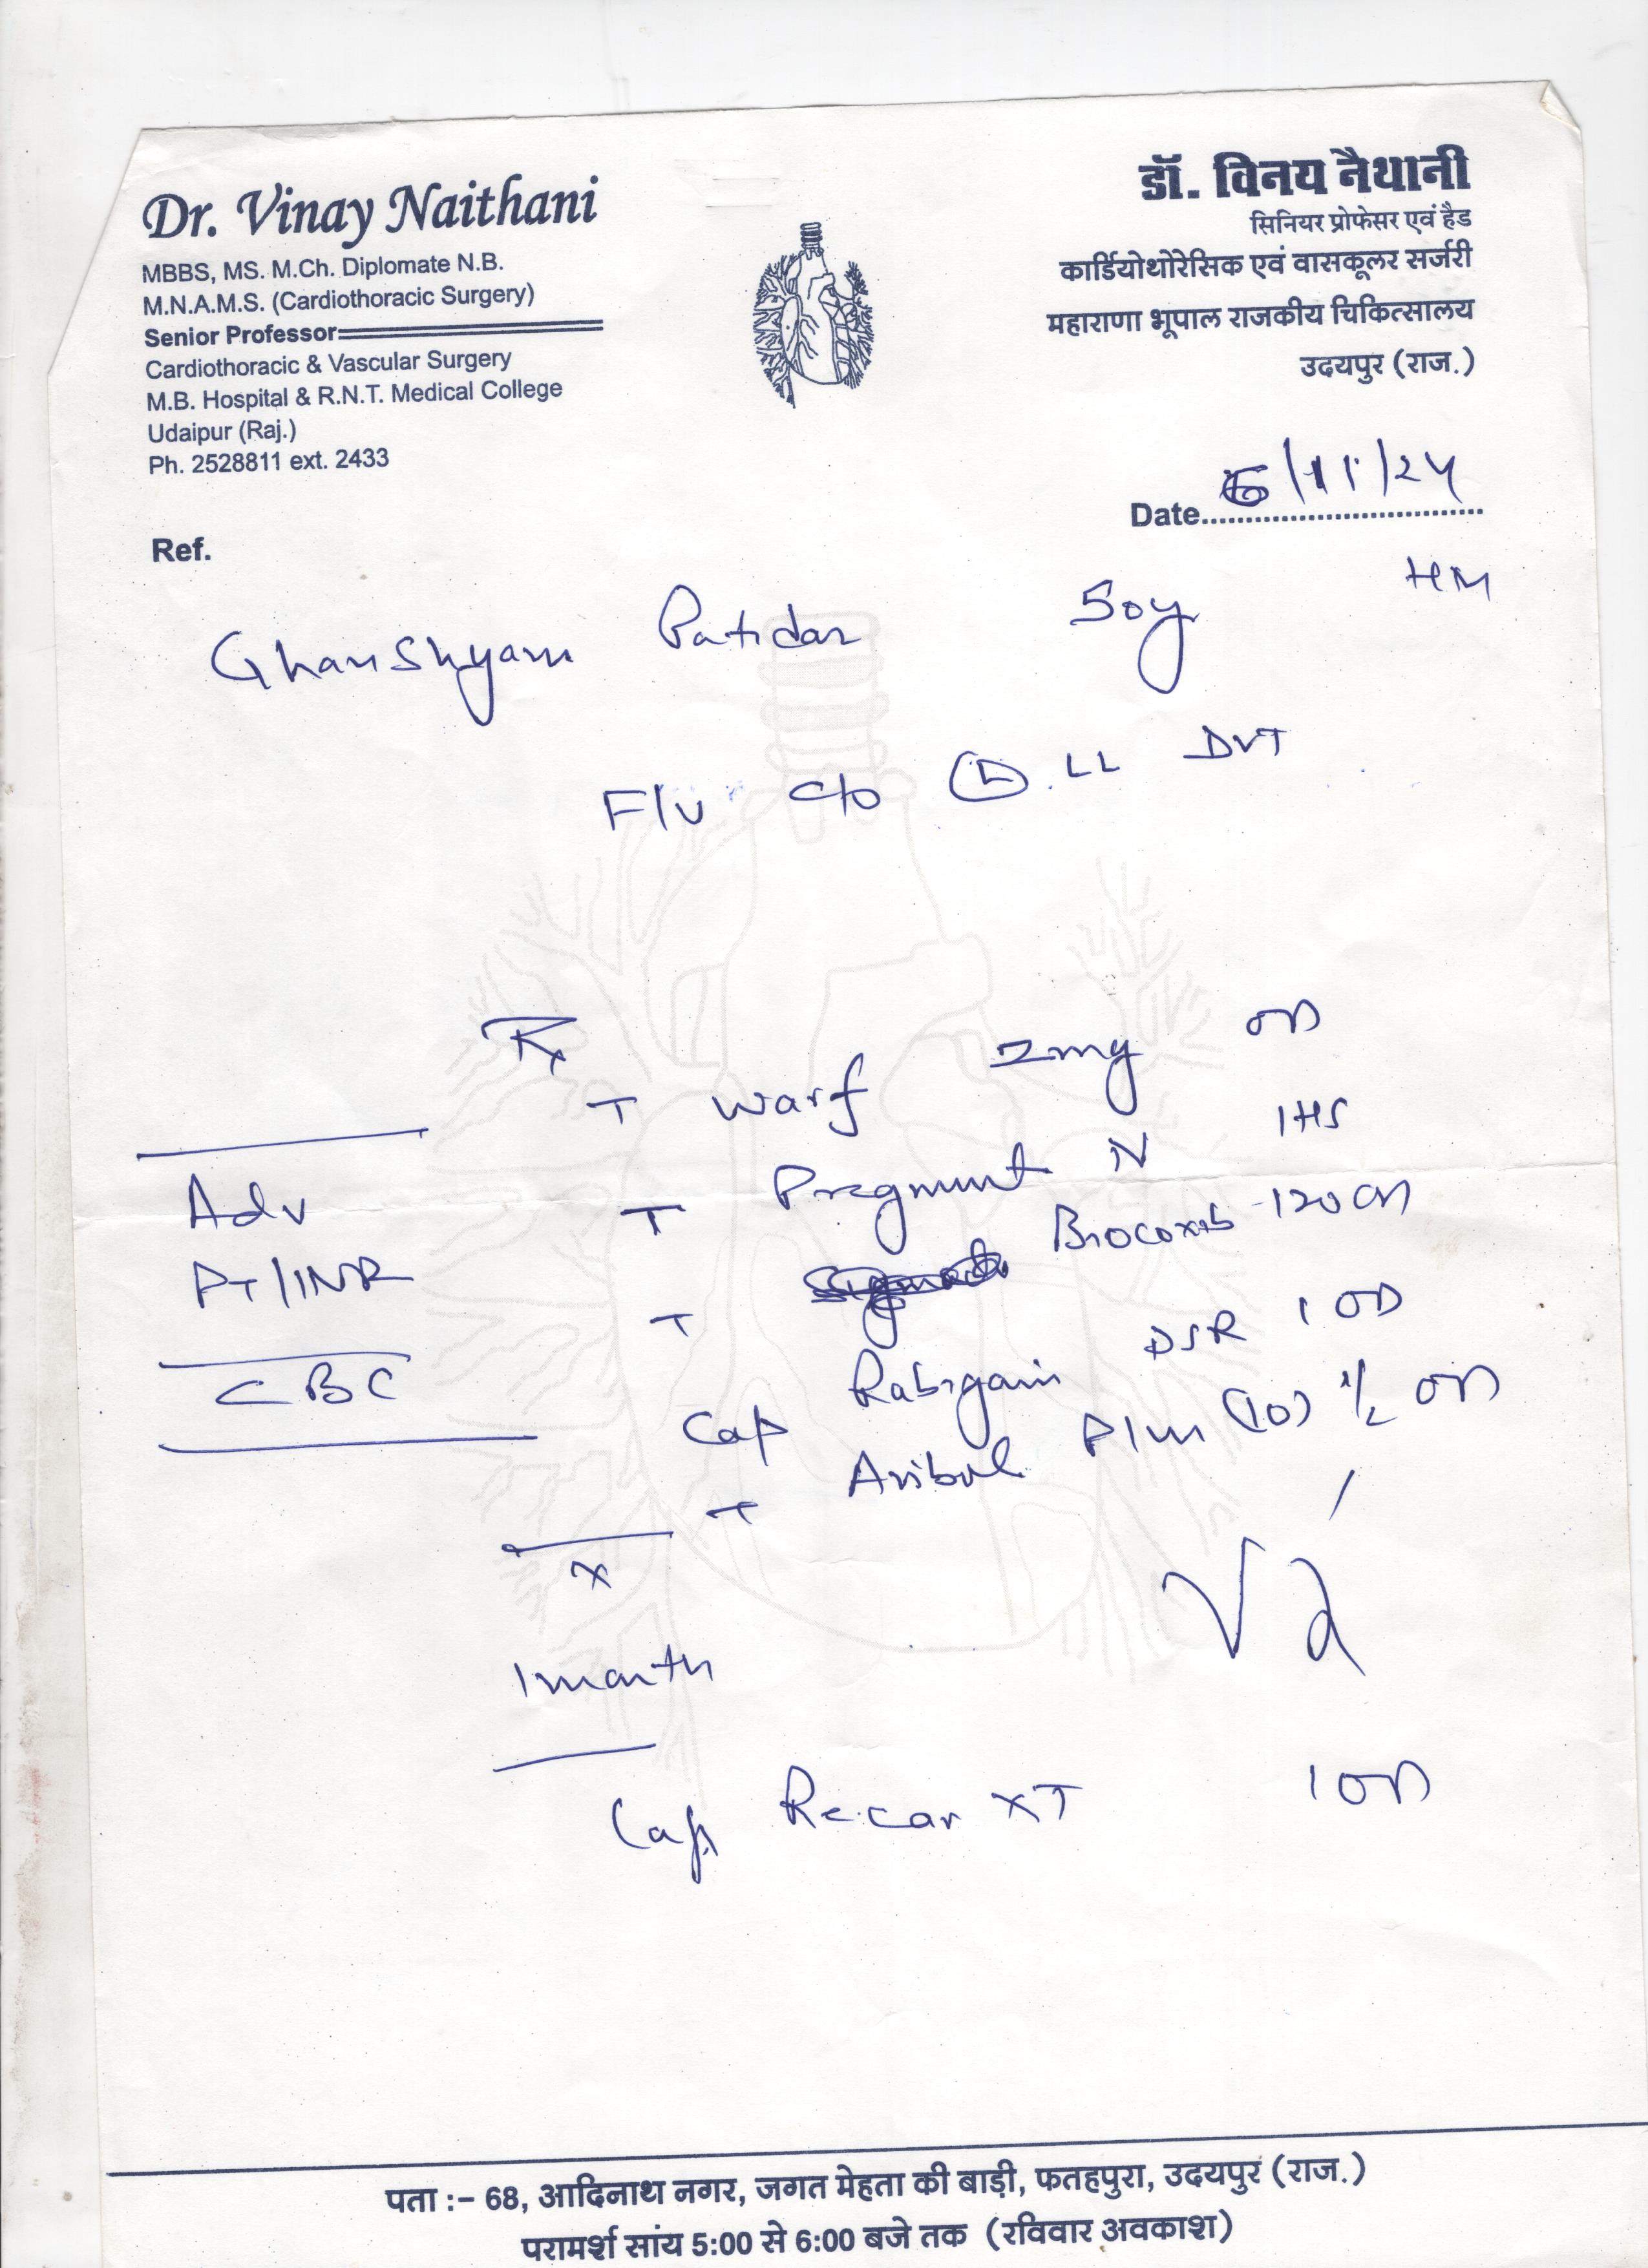 Dr. Vinay Naithani
MBBS, MS. M.Ch. Diplomate N.B.
M.N.A.M.S. (Cardiothoracic Surgery)
Senior Professor
Cardiothoracic & Vascular Surgery
M.B. Hospital & R.N.T. Medical College
Udaipur (Raj.)
Ph. 2528811 ext. 2433
डॉ. विनय नैथानी
सिनियर प्रोफेसर एवं हैड
कार्डियोथोरेसिक एवं वासकूलर सर्जरी
महाराणा भूपाल राजकीय चिकित्सालय
उदयपुर (राज.)
Date 6/11/24
Ref.
Ghanshyam Patidar 50y HM
F/U c/o L LL DVT
Rx
T warf 2mg OD
T N 1HS
T 120 OD
Cap DSR 1 OD
T Plus (10) 1/2 OD
Adv
PT/INR
CBC
x
1 month
Cap XT 1 OD
पता :- 68, आदिनाथ नगर, जगत मेहता की बाड़ी, फतहपुरा, उदयपुर (राज.)
परामर्श सांय 5:00 से 6:00 बजे तक (रविवार अवकाश)